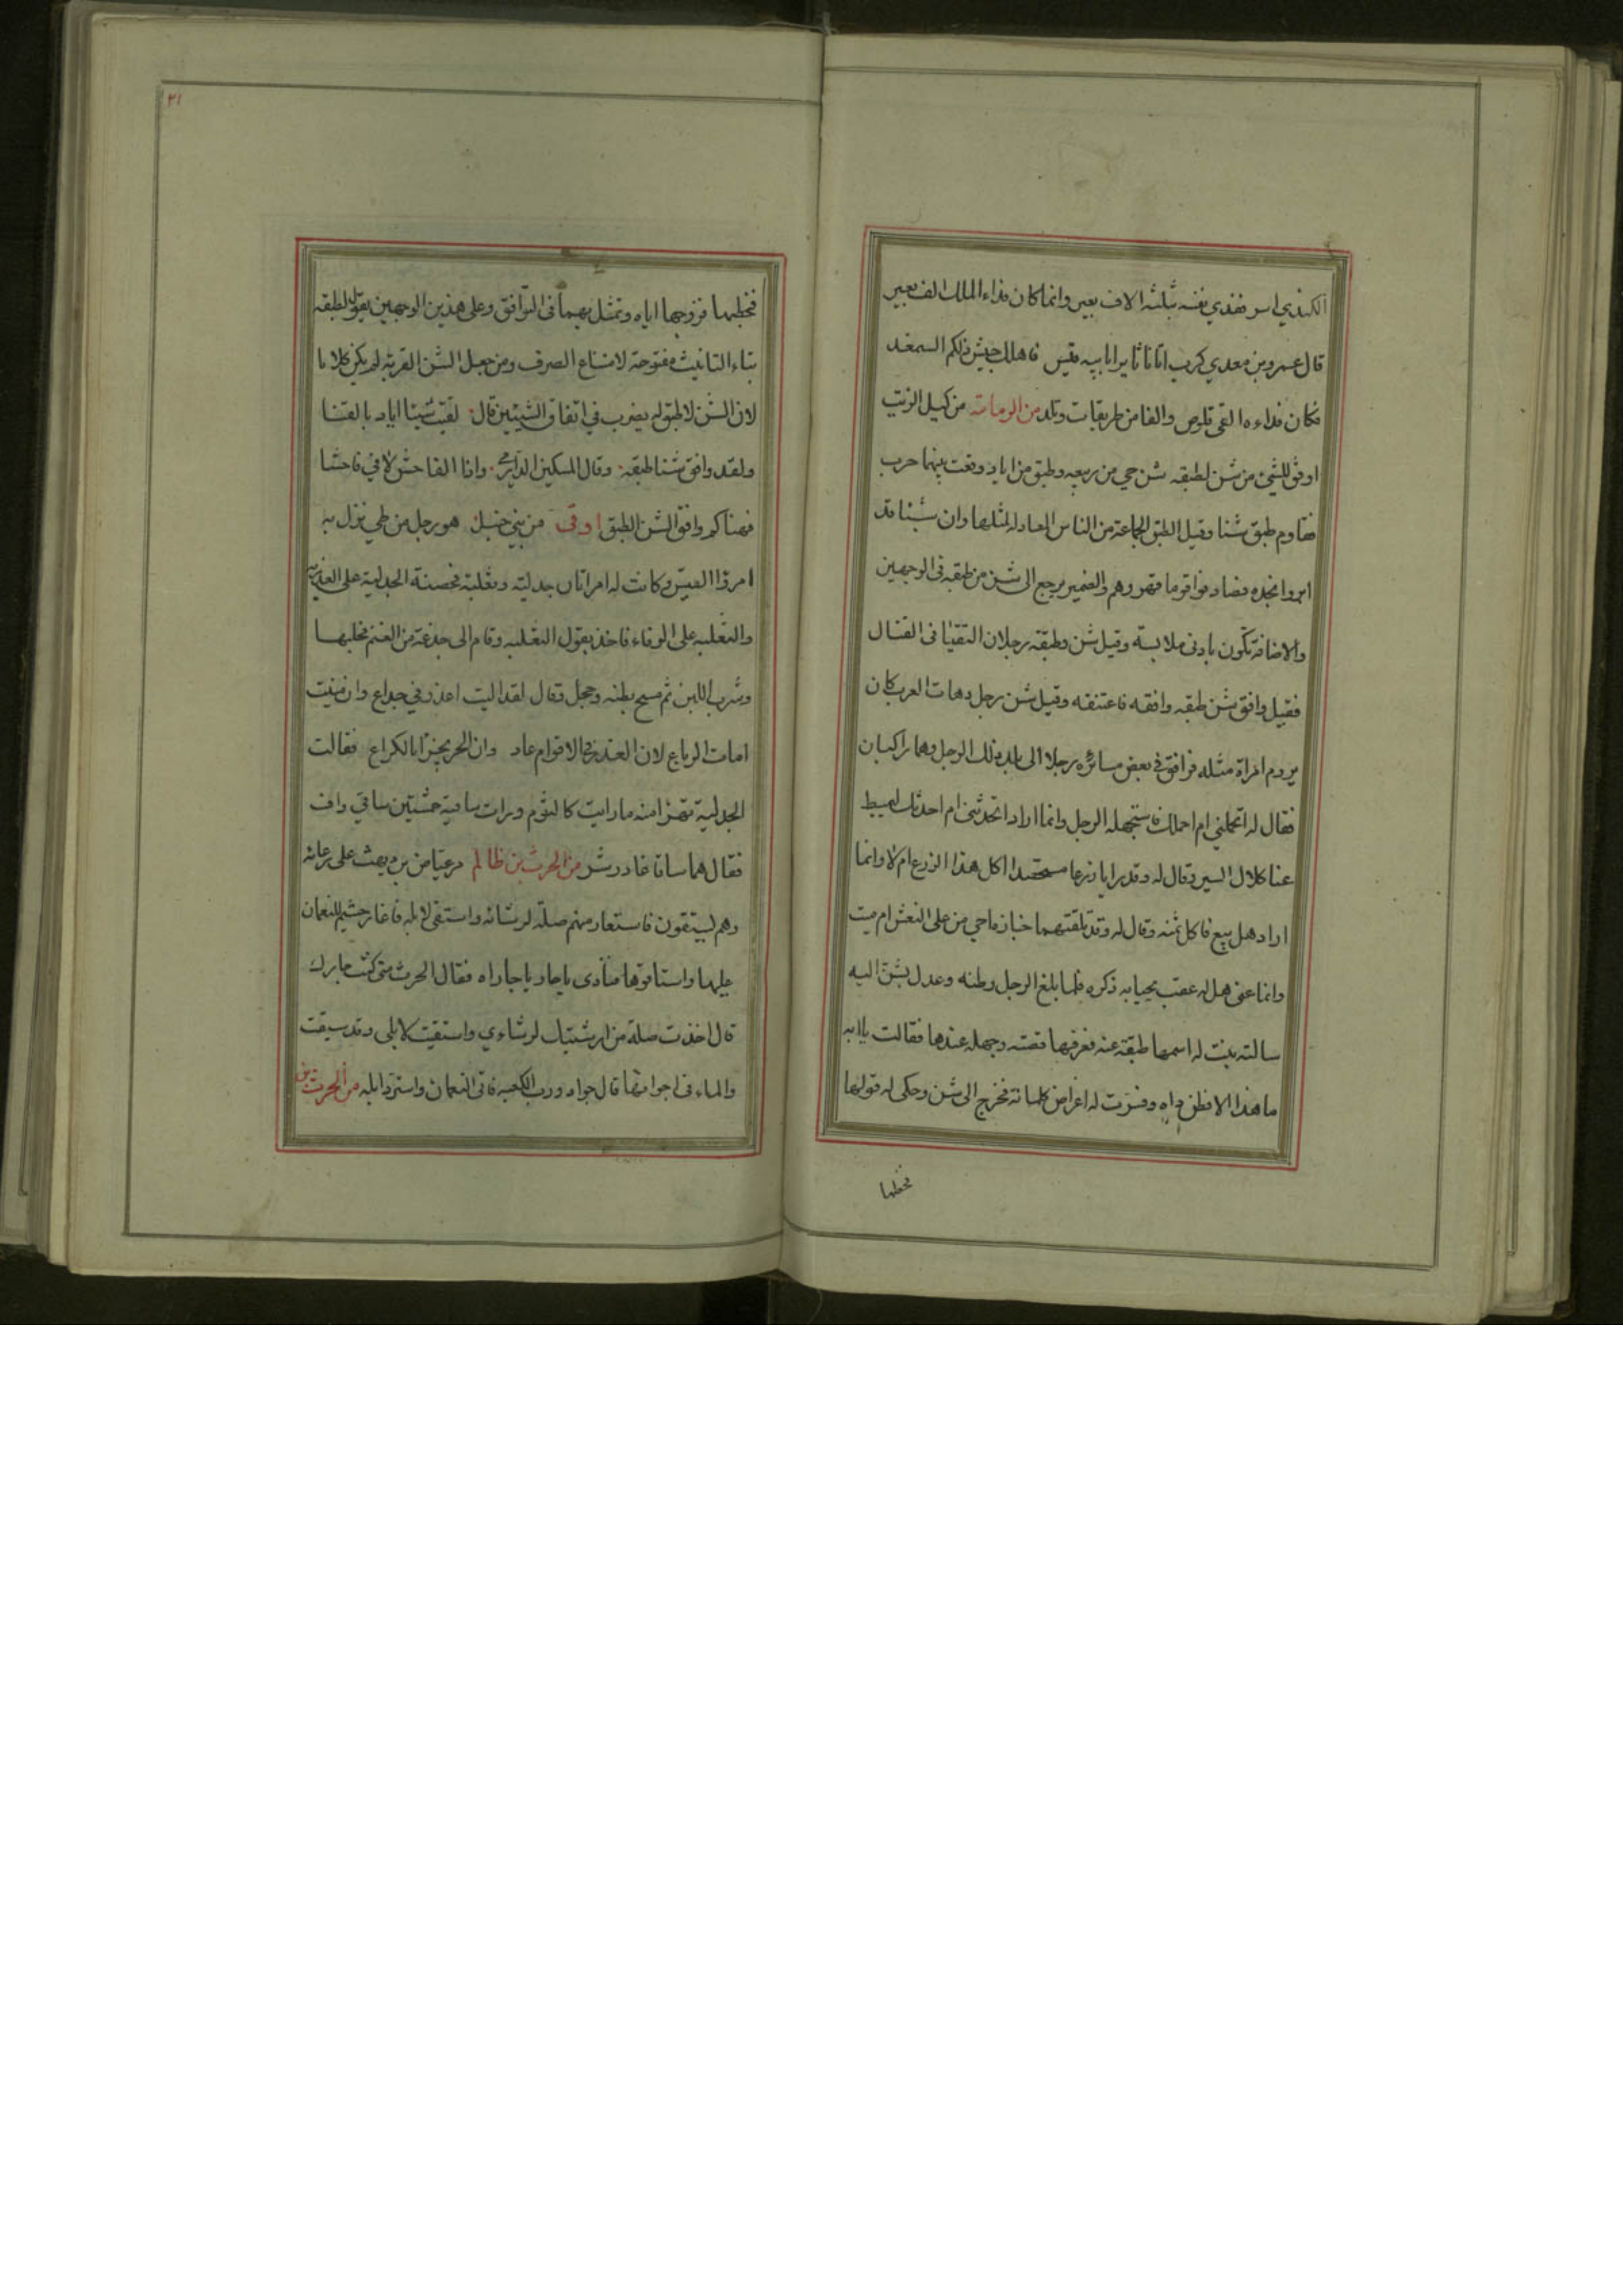 الكندي اسر ففدي نفسه بثلثه الاف بعير وانما كان فداء الملك الف بعير
قال عمرو بن معدي كرب اتانا ثايرا بابيه قيس فاهلك جيش ذلكم السمغد
فكان فداءه الفى قلوص والفا من طريفات وتلد من الرمانة من كيل الزيت
اوفق للشئ من شن لطبقه شن حي من ربيعه وطبق من اياد وقعت بينهما حرب
فقاوم طبق شنا وقيل الطبق الجماعة من الناس المعادلة لمثلها وان شنا قد
ابروا نجده فصادفوا قوما قهروهم والضمير يرجع الى شن من طبقه فى الوجهين
والاضافة تكون بادنى ملابسة وقيل شن وطبقة رجلان التقيا فى القتال
فقيل وافق شن طبقه وافقه فاعتنقه وقيل شن رجل دهات العرب كان
يروم امراة مثله فرافق في بعض مسائره رجلا الى بلد ذلك الرجل وهما راكبان
فقال له اتحملني ام احملك فاستجهله الرجل وانما اراد اتحدثنى ام احدثك لنميط
عنا كلال السير وقال له وقد رايا زرعا مستحصدا اكل هذا الزرع ام لا وانما
اراد هل بيع فاكل ثمنه وقال له وقد تلقتهما جنازة احي من على النعش ام ميت
وانما عنى هل له عقب يحيا به ذكره فلما بلغ الرجل وطنه وعدل بشن اليه
سالته بنت له اسمها طبقة عنه فعرفها قصته وجهله عندها فقالت يا ابه
ما هذا الا فطن داه وفسرت له اغراض كلماته فخرج الى شن وحكى له قولها
فخطبها
٢١
فخطبها فزوجها اياه وتمثل بهما فى التوافق وعلى هذين الوجهين يقال لطبقه
بتاء التانيث مفتوحة لامتناع الصرف ومن جعل الشن القربة لم يكن كلاما
لان الشن لا طبق له يضرب في اتفاق الشيئين قال لقيت شنا اياد بالقنا
ولقد وافق شنا طبقه وقال المسكين الدارمي واذا الفاحش لاقي فاحشا
فهناكم وافق الشن الطبق اوفى من بني حنبل هو رجل من طي نزل به
امرؤ القيس وكانت له امراتان جدلية وتغلبة فحضته الجدلية على الغدر به
والتغلبيه على الوفاء فاخذ بقول التغلبيه وقام الى جذعة من الغنم فحلبها
وشرب اللبن ثم مسح بطنه وحجل وقال لقد اليت اعذر في جداع وان منيت
امات الرباع لان الغدر فى الاقوام عار وان الحر يجزا بالكراع فقالت
الجدلية تهزا منه ما رايت كاليوم ورات ساقيه حمشتين ساقي واف
فقال هما ساقا غادر شر من الحرث بن ظالم مر عياض بن ديهث على رعائه
وهم يستقون فاستعار منهم صلة لرشائه واستقى لابله فاغار حشم للنعمان
عليها واستاقوها فنادى يا حار يا جاراه فقال الحرث متى كنت جارك
قال اخذت صلة من ارشيتك لرشاءي واستقيت لابلى وقد سيقت
والماء فى اجوافها قال جوار ورب الكعبه فاتى النعمان واسترد ابله من الحرث بن